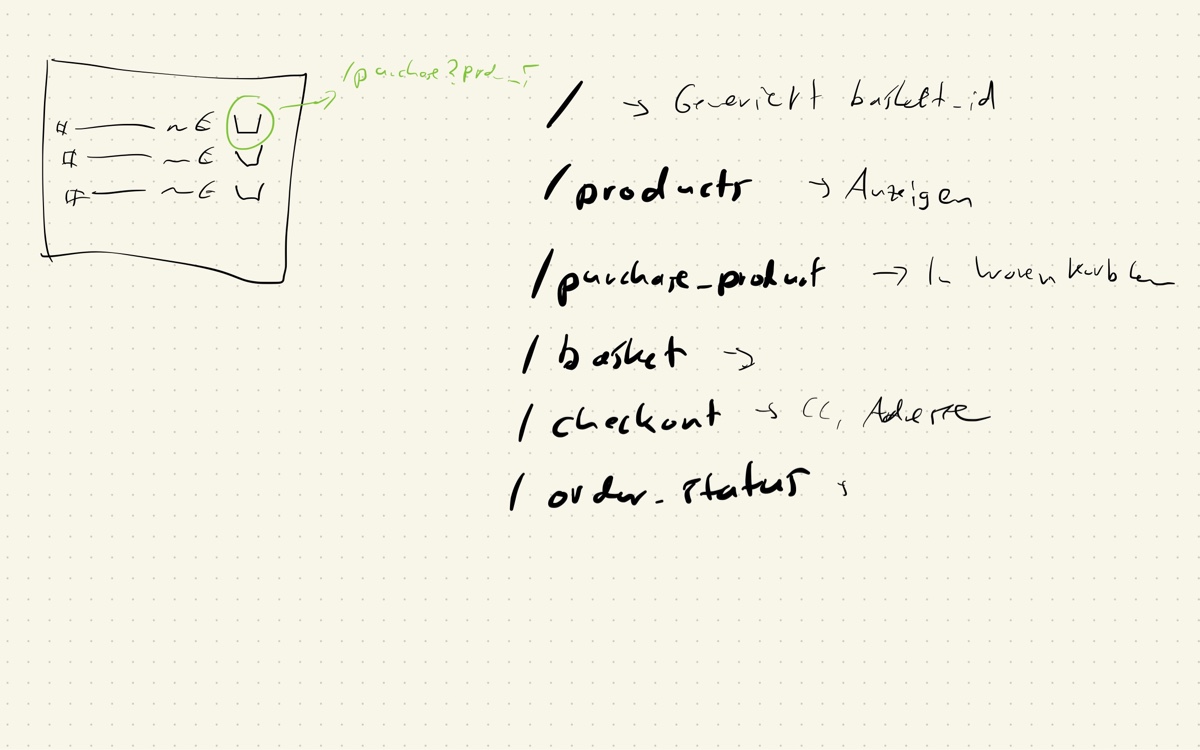 /purchase?prod_
# ~ €
# ~ €
# ~ €
/ → Generiert basket_id
/products → Anzeigen
/purchase_product → In Warenkorb
/basket →
/checkout → CC, Adresse
/order_status